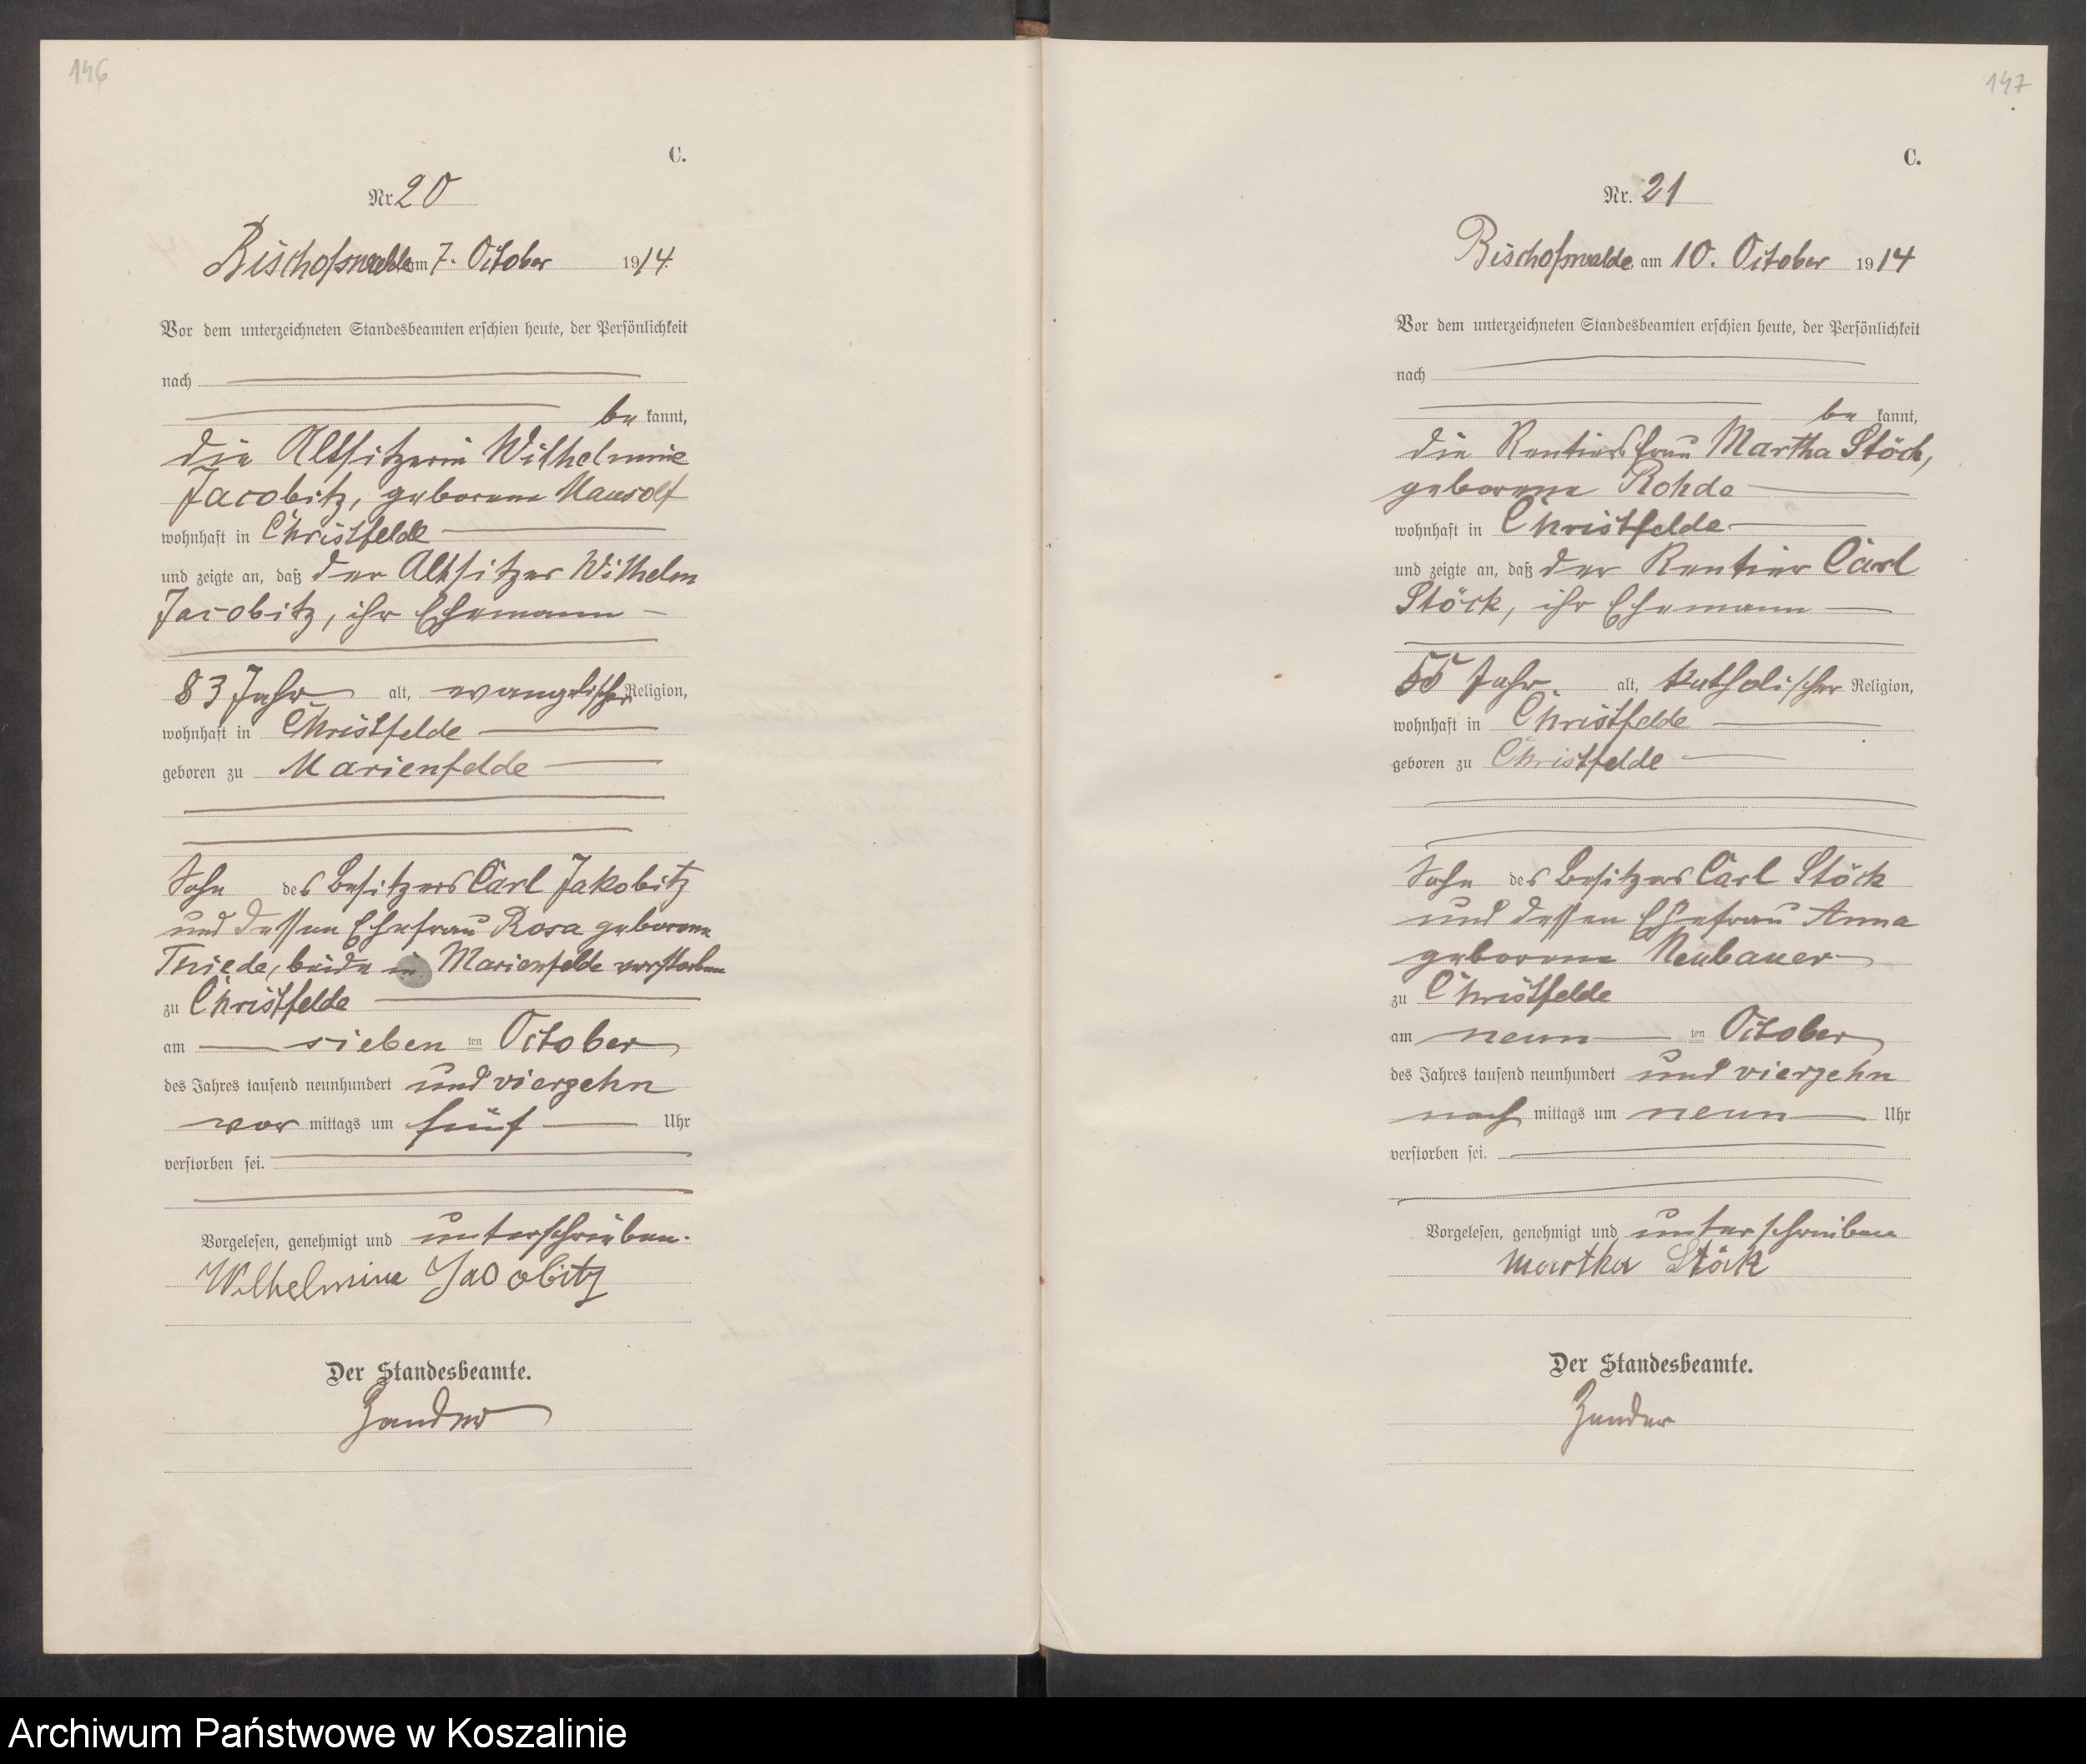 146
C.
Nr 20
Bischofswalde am 7. October 1914.
Vor dem unterzeichneten Standesbeamten erschien heute, der Persönlichkeit
nach
be kannt,
die Altsitzerin Wilhelmine
Jacobitz, geborene Mausolf
wohnhaft in Christfelde
und zeigte an, daß der Altsitzer Wilhelm
Jacobitz, ihr Ehemann
83 Jahr alt, evangelischer Religion,
wohnhaft in Christfelde
geboren zu Marienfelde
Sohn des Besitzers Carl Jakobitz
und dessen Ehefrau Rosa geborene
Thiede, beide in Marienfelde verstorben
zu Christfelde
am sieben ten October
des Jahres tausend neunhundert und vierzehn
vor mittags um fünf Uhr
verstorben sei.
Vorgelesen, genehmigt und unterschrieben.
Wilhelmine Jacobitz
Der Standesbeamte.
Zander
147
C.
Nr. 21
Bischofswalde, am 10. October 1914
Vor dem unterzeichneten Standesbeamten erschien heute, der Persönlichkeit
nach
be kannt,
die Rentiersfrau Martha Stöck,
geborene Rohde
wohnhaft in Christfelde
und zeigte an, daß der Rentier Carl
Stöck, ihr Ehemann
55 Jahr alt, katholischer Religion,
wohnhaft in Christfelde
geboren zu Christfelde
Sohn des Besitzers Carl Stöck
und dessen Ehefrau Anna
geborene Neubauer
zu Christfelde
am neun ten October
des Jahres tausend neunhundert und vierzehn
nach mittags um neun Uhr
verstorben sei.
Vorgelesen, genehmigt und unterschrieben
Martha Stöck
Der Standesbeamte.
Zander
Archiwum Państwowe w Koszalinie